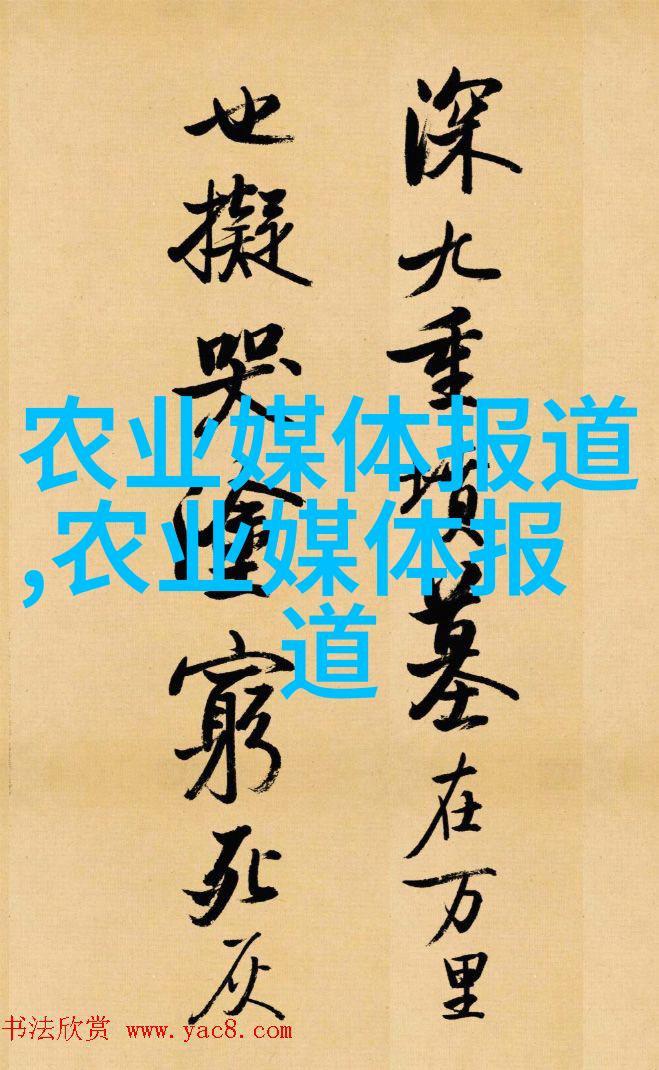 深九重墳墓在万里
也擬哭塗窮死灰
农业媒体报道
,农业媒体报
道
书法欣赏 www.yac8.com